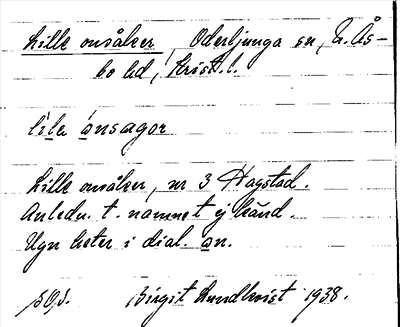 Lille onsåker, Oderljunga sn, N. Ås-
bo hd, Krist. l.
lila onsagor
Lille onsåker, nr 3 Hagstad.
Anledn. t. namnet ej känd.
Ugn heter i dial. on.
Birgit Lundkvist 1938.